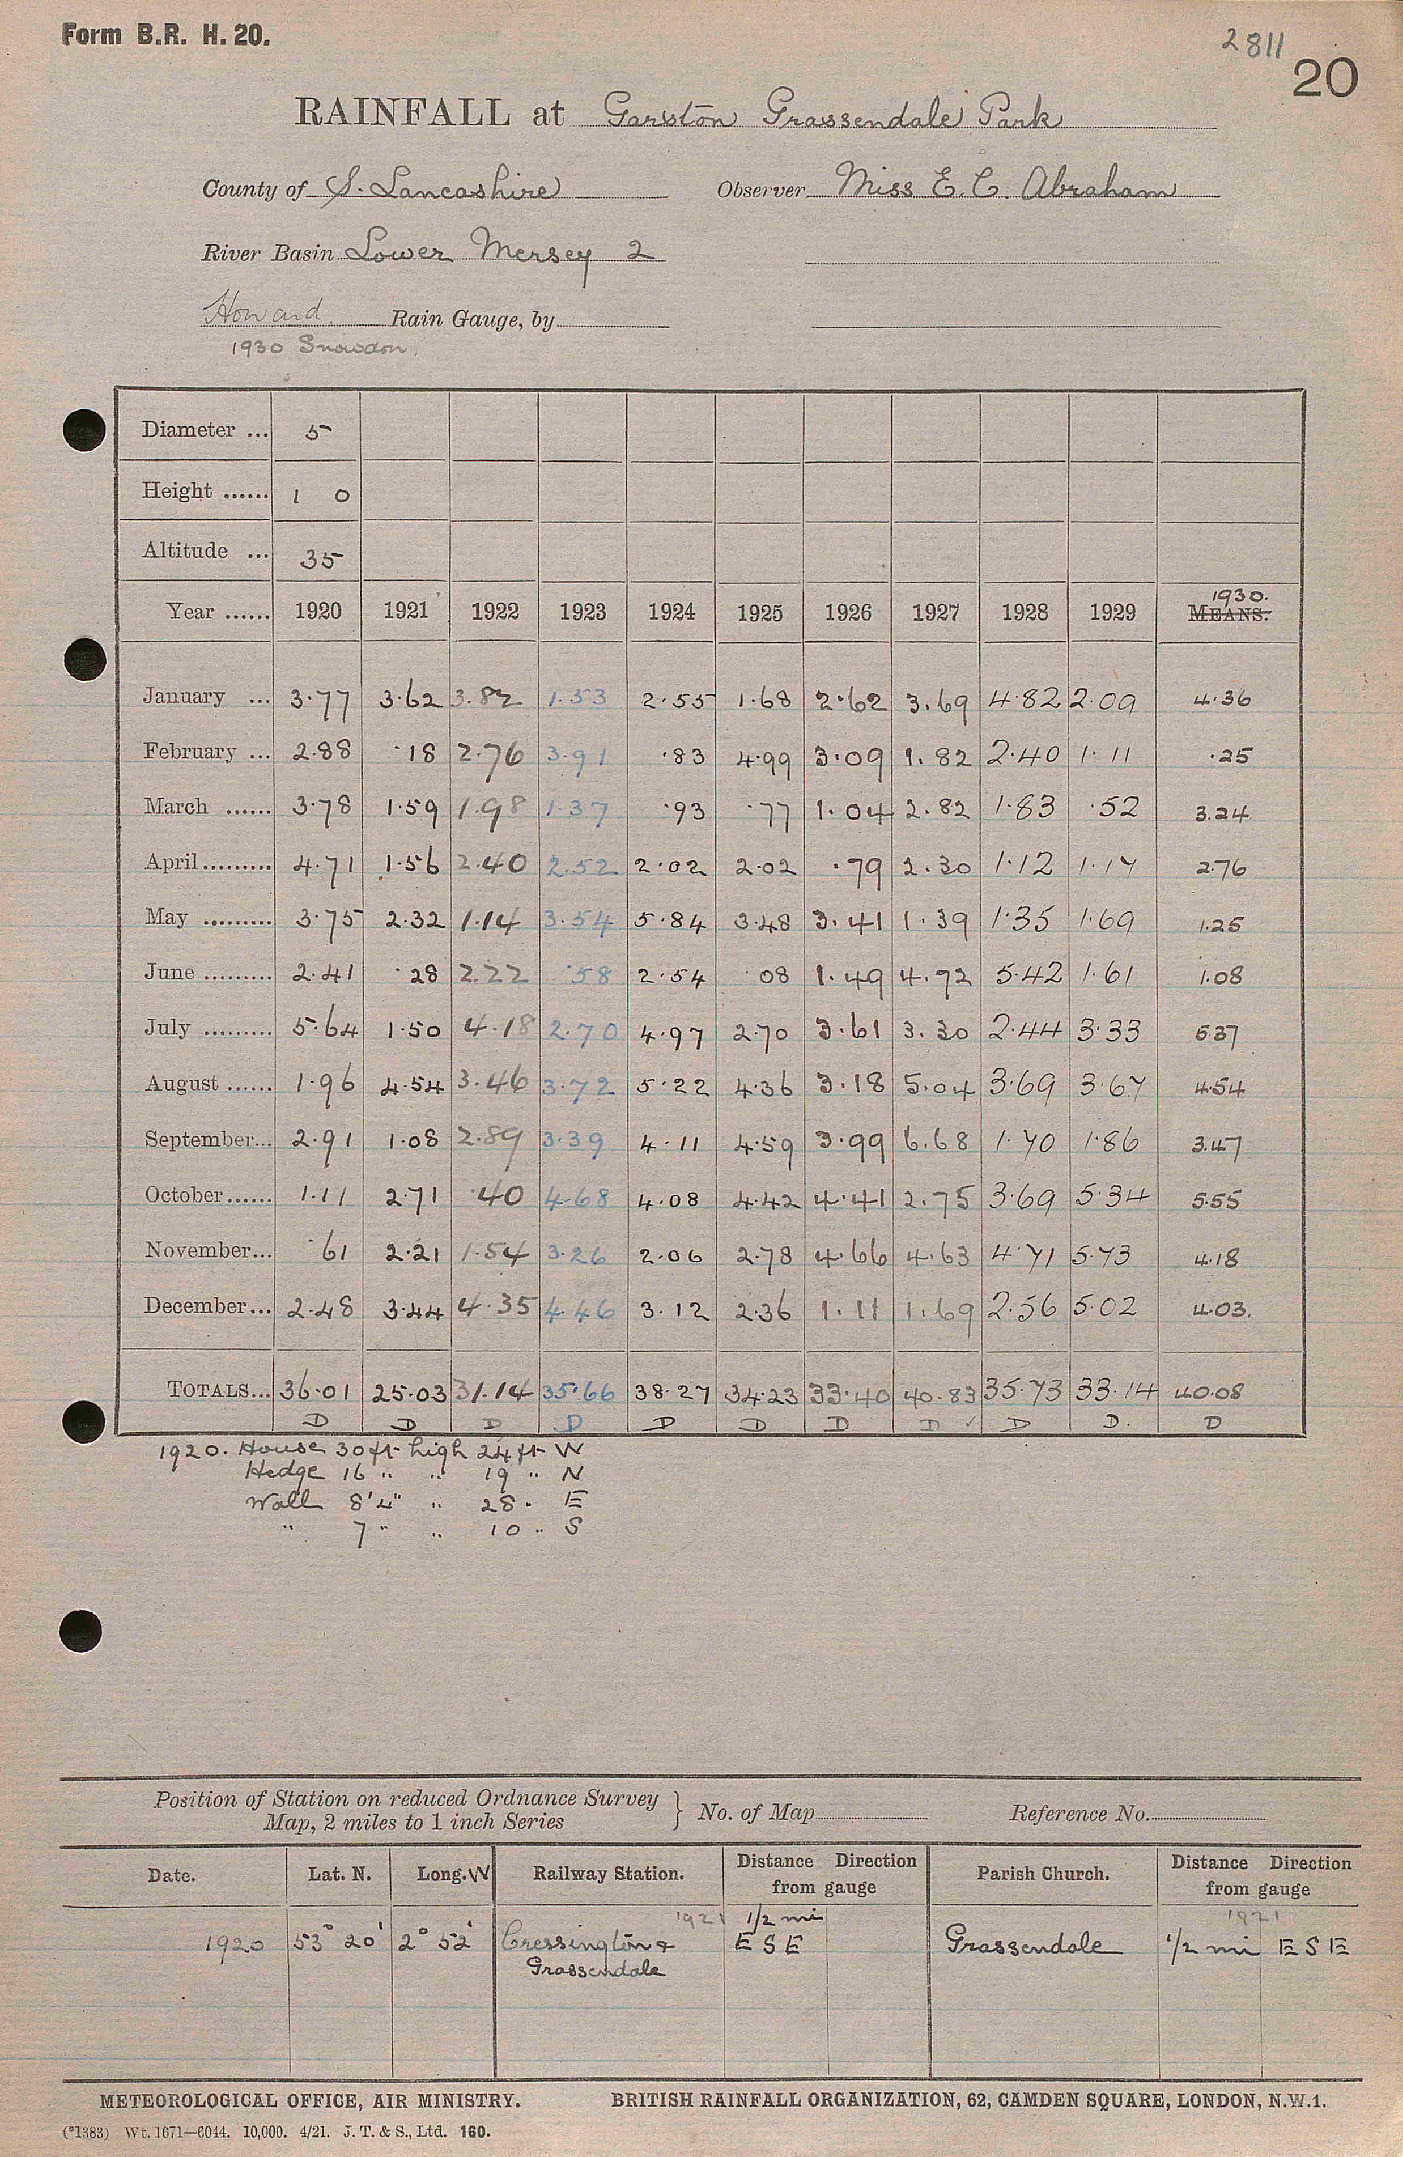 Form B.R. H. 20.
2811
20
RAINFALL at Garston Grassendale Park
County of S. Lancashire Observer Miss E. C. Abraham
River Basin Lower Mersey 2
Howard Rain Gauge, by
1930 Snowdon
Diameter ... 5
Height ...... 1 0
Altitude ... 35
1930.
Year ...... 1920 1921 1922 1923 1924 1925 1926 1927 1928 1929 MEANS.
January ... 3.77 3.62 3.82 1.53 2.55 1.68 2.62 3.69 4.82 2.09 4.36
February ... 2.88 .18 2.76 3.91 .83 4.99 3.09 1.82 2.40 1.11 .25
March ...... 3.78 1.59 1.98 1.37 .93 .77 1.04 2.82 1.83 .52 3.24
April ......... 4.71 1.56 2.40 2.52 2.02 2.02 .79 2.30 1.12 1.17 2.76
May ......... 3.75 2.32 1.14 3.54 5.84 3.48 3.41 1.39 1.35 1.69 1.25
June ......... 2.41 .28 2.22 .58 2.54 .08 1.49 4.72 5.42 1.61 1.08
July ......... 5.64 1.50 4.18 2.70 4.97 2.70 3.61 3.30 2.44 3.33 5.37
August ...... 1.96 4.54 3.46 3.72 5.22 4.36 3.18 5.04 3.69 3.67 4.54
September... 2.91 1.08 2.89 3.39 4.11 4.59 3.99 6.68 1.70 1.86 3.47
October...... 1.11 2.71 .40 4.68 4.08 4.42 4.41 2.75 3.69 5.34 5.55
November... .61 2.21 1.54 3.26 2.06 2.78 4.66 4.63 4.71 5.73 4.18
December... 2.48 3.44 4.35 4.46 3.12 2.36 1.11 1.69 2.56 5.02 4.03.
TOTALS... 36.01 25.03 31.14 35.66 38.27 34.23 33.40 40.83 35.73 33.14 40.08
D D D D D D D D ✓ D D. D
1920. House 30 ft high 24 ft W
Hedge 16 " " 19 " N
Wall 8'4" " 28 " E
" 7 " " 10 " S
Position of Station on reduced Ordnance Survey
Map, 2 miles to 1 inch Series } No. of Map Reference No.
Date. Lat. N. Long. W Railway Station. Distance Direction from gauge Parish Church. Distance Direction from gauge
1921 1/2 mi 1921
1920 53° 20' 2° 52' Cressington & E S E Grassendale 1/2 mi E S E
Grassendale
METEOROLOGICAL OFFICE, AIR MINISTRY. BRITISH RAINFALL ORGANIZATION, 62, CAMDEN SQUARE, LONDON, N.W.1.
(*1383) Wt. 1671—6044. 10,000. 4/21. J. T. & S., Ltd. 160.